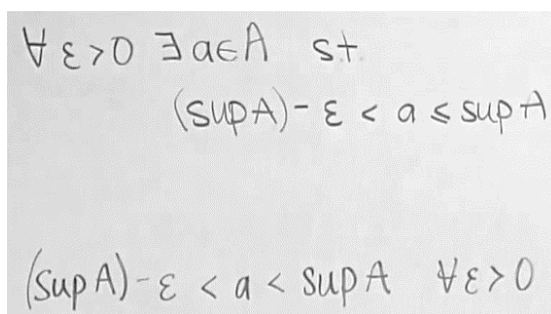 ∀ ε>0 ∃ a∈A st.
(supA)-ε < a ≤ supA
(sup A)-ε < a < sup A ∀ε>0